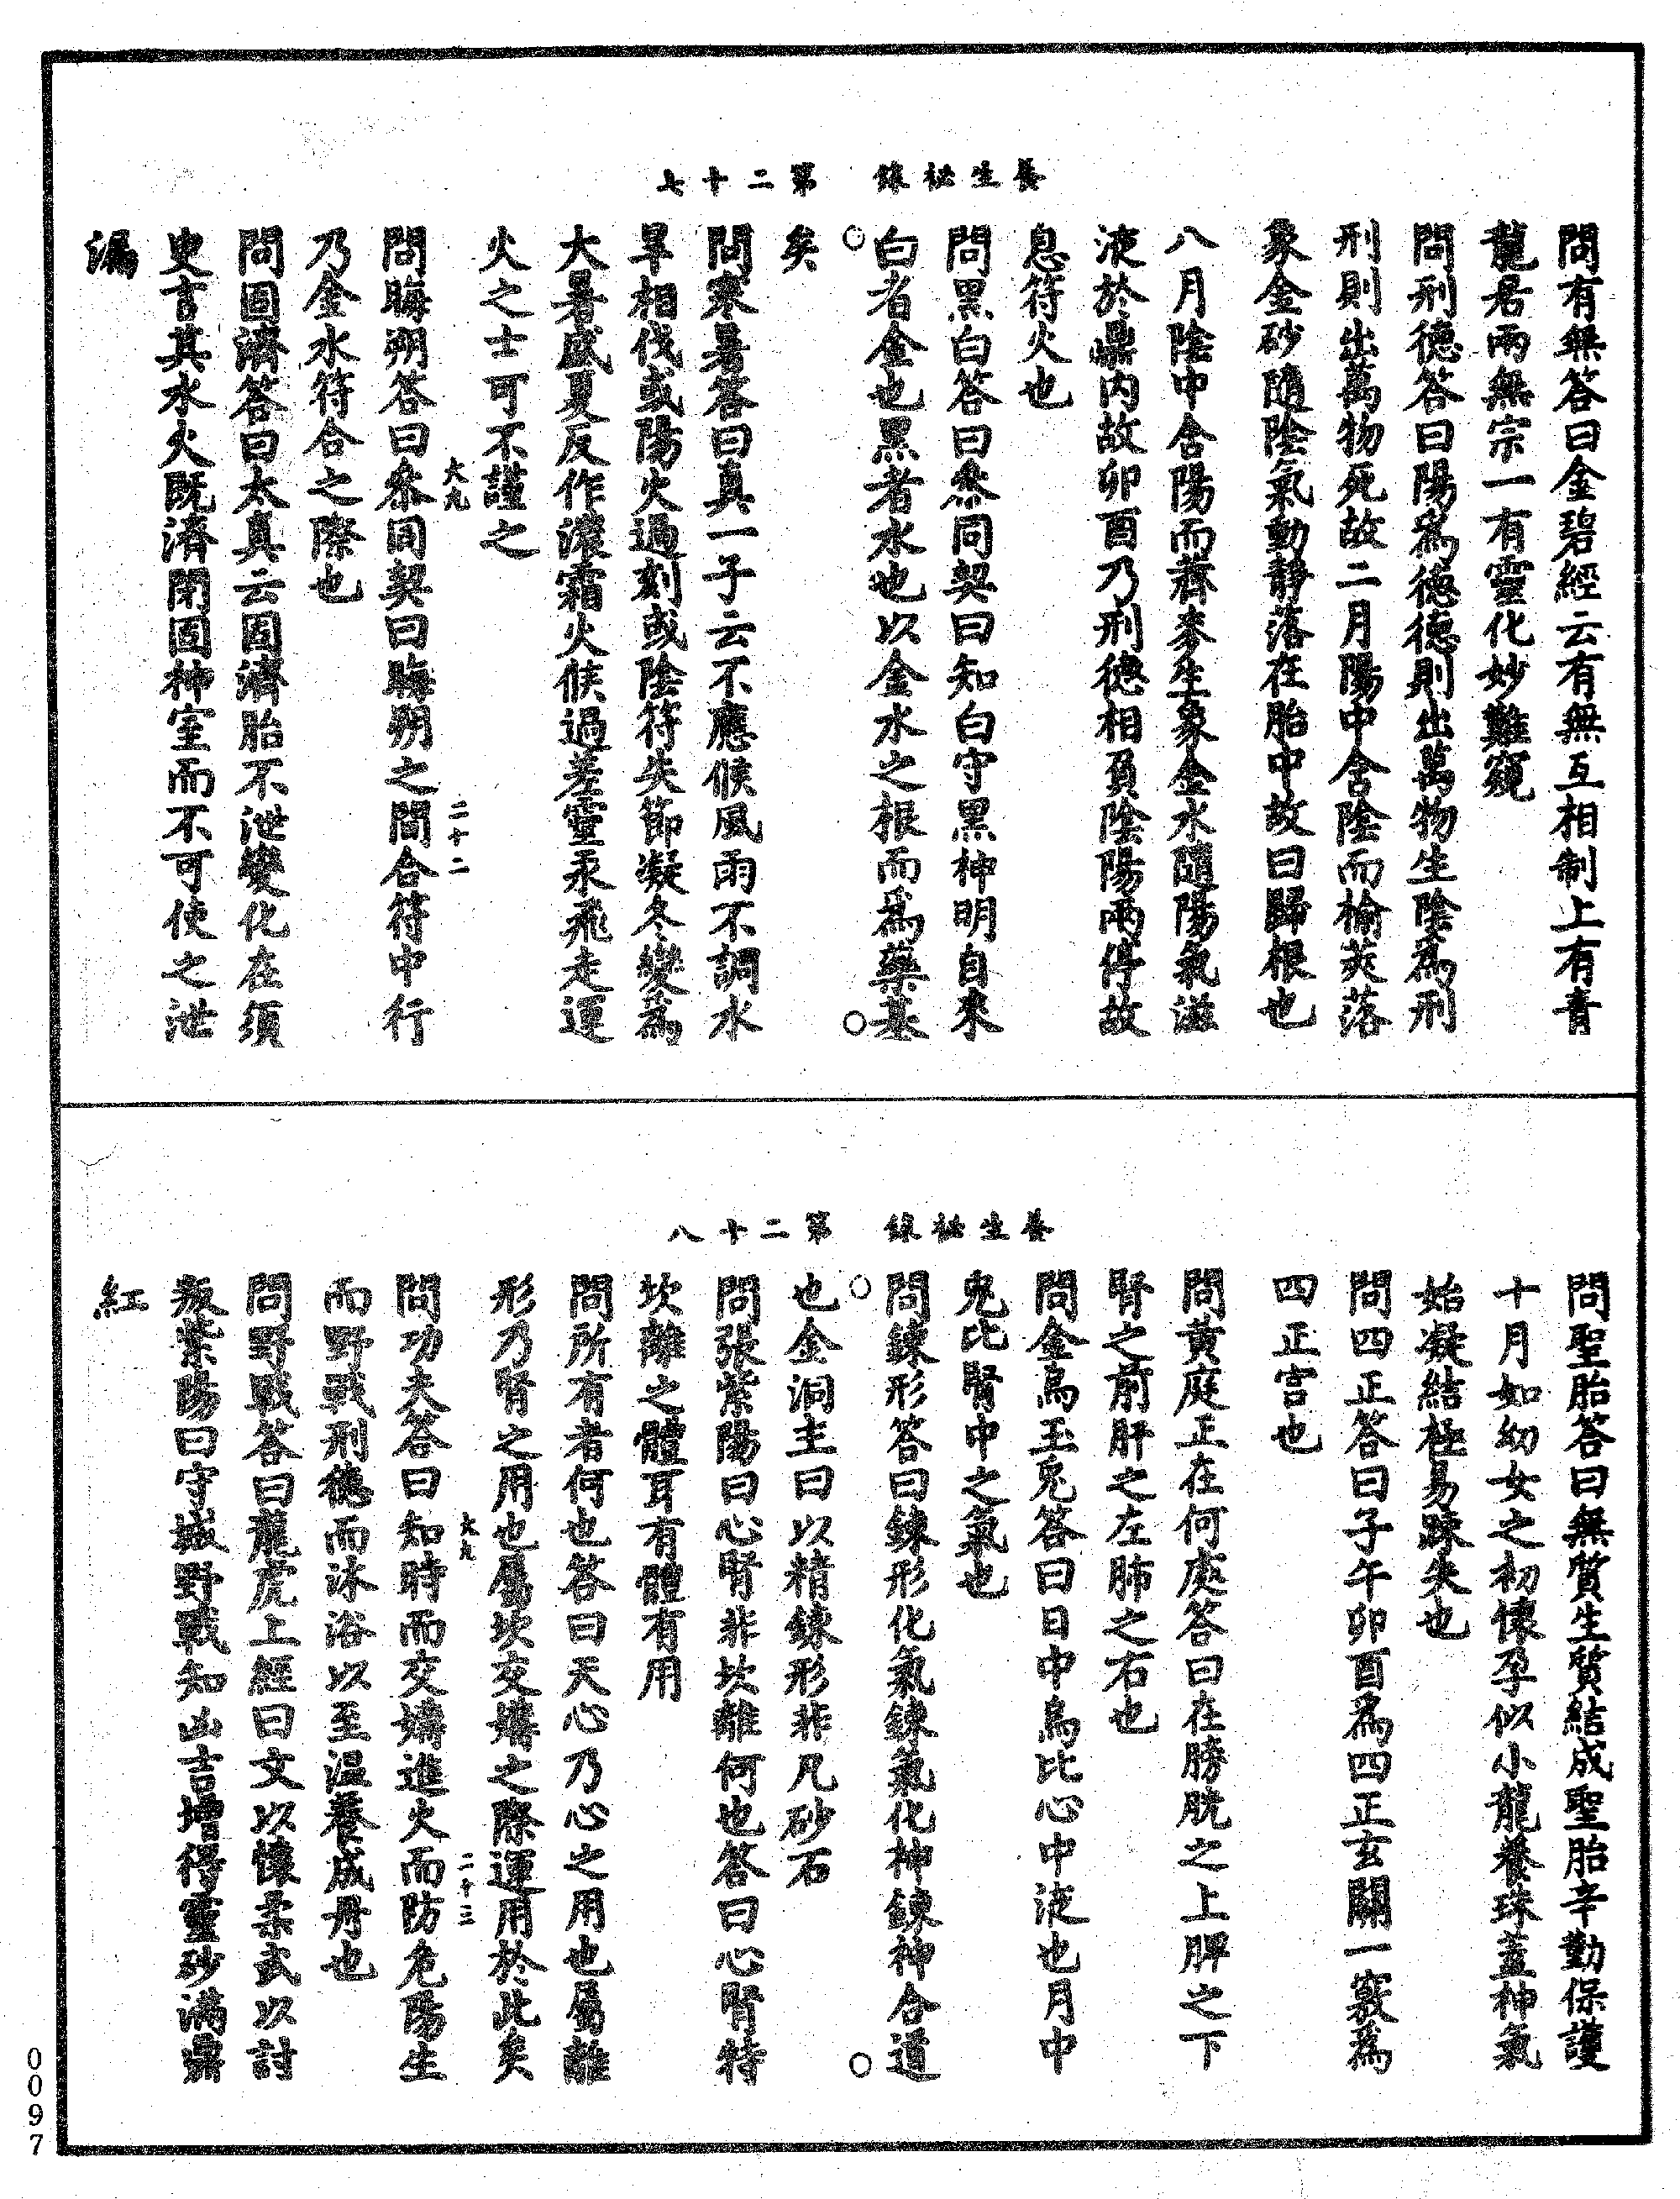 養生祕錄　第二十七
問有無答曰金碧經云有無互相制上有青
龍居兩無宗一有靈化妙難窺
問刑德答曰陽爲德德則出萬物生陰爲刑
刑則出萬物死故二月陽中含陰而榆莢落
象金砂隨陰氣動靜落在胎中故曰歸根也
八月陰中含陽而薺麥生象金水隨陽氣滋
液於鼎內故卯酉乃刑德相負陰陽兩停故
息符火也
問黑白答曰叅同契曰知白守黑神明自來
白者金也黑者水也以金水之根而爲藥基
矣
問寒暑答曰真一子云不應候風雨不調水
旱相伐或陽火過刻或陰符失節凝冬變爲
大暑盛夏反作濃霜火候過差靈汞飛走運
火之士可不謹之
大九　二十二
問晦朔答曰叅同契曰晦朔之間合符中行
乃金水符合之際也
問固濟答曰太真云固濟胎不泄變化在須
臾言其水火既濟閉固神室而不可使之泄
漏
養生祕錄　第二十八
問聖胎答曰無質生質結成聖胎辛勤保護
十月如幼女之初懷孕似小龍養珠蓋神氣
始凝結極易疎失也
問四正答曰子午卯酉爲四正玄關一竅爲
四正宮也
問黃庭正在何處答曰在膀胱之上脾之下
腎之前肝之左肺之右也
問金烏玉兎答曰日中烏比心中液也月中
兎比腎中之氣也
問鍊形答曰鍊形化氣鍊氣化神鍊神合道
也金洞主曰以精鍊形非凡砂石
問張紫陽曰心腎非坎離何也答曰心腎特
坎離之體耳有體有用
問所有者何也答曰天心乃心之用也屬離
形乃腎之用也屬坎交媾之際運用於此矣
大九　二十三
問功夫答曰知時而交媾進火而防危陽生
而野戰刑德而沐浴以至温養成丹也
問野戰答曰龍虎上經曰文以懷柔武以討
叛紫陽曰守城野戰知凶吉增得靈砂滿鼎
紅
0097